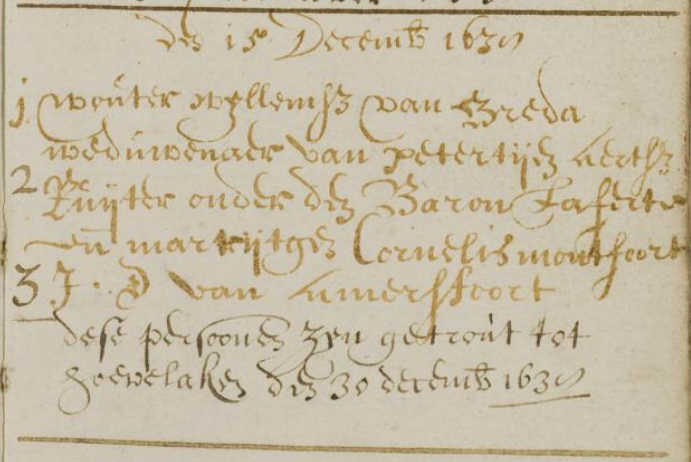 den 15 Decemb 1639
1 wouter wyllemsz van Breda
weduwenaer van petertijen Aertsz
2 Ruyter onder den Baron Laferte
en marrijtgen Cornelis montfoort
3 J. D van Amersfoort
dese persoonen zyn getrout tot
hoevelaken den 30 decemb 1639